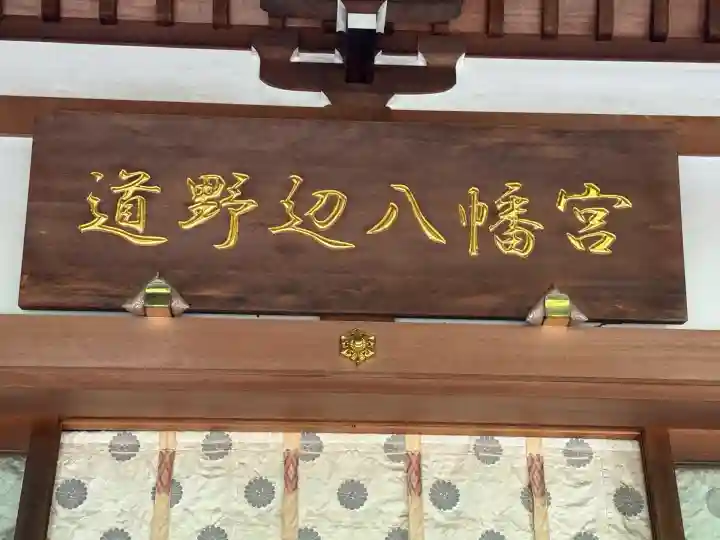 道野辺八幡宮